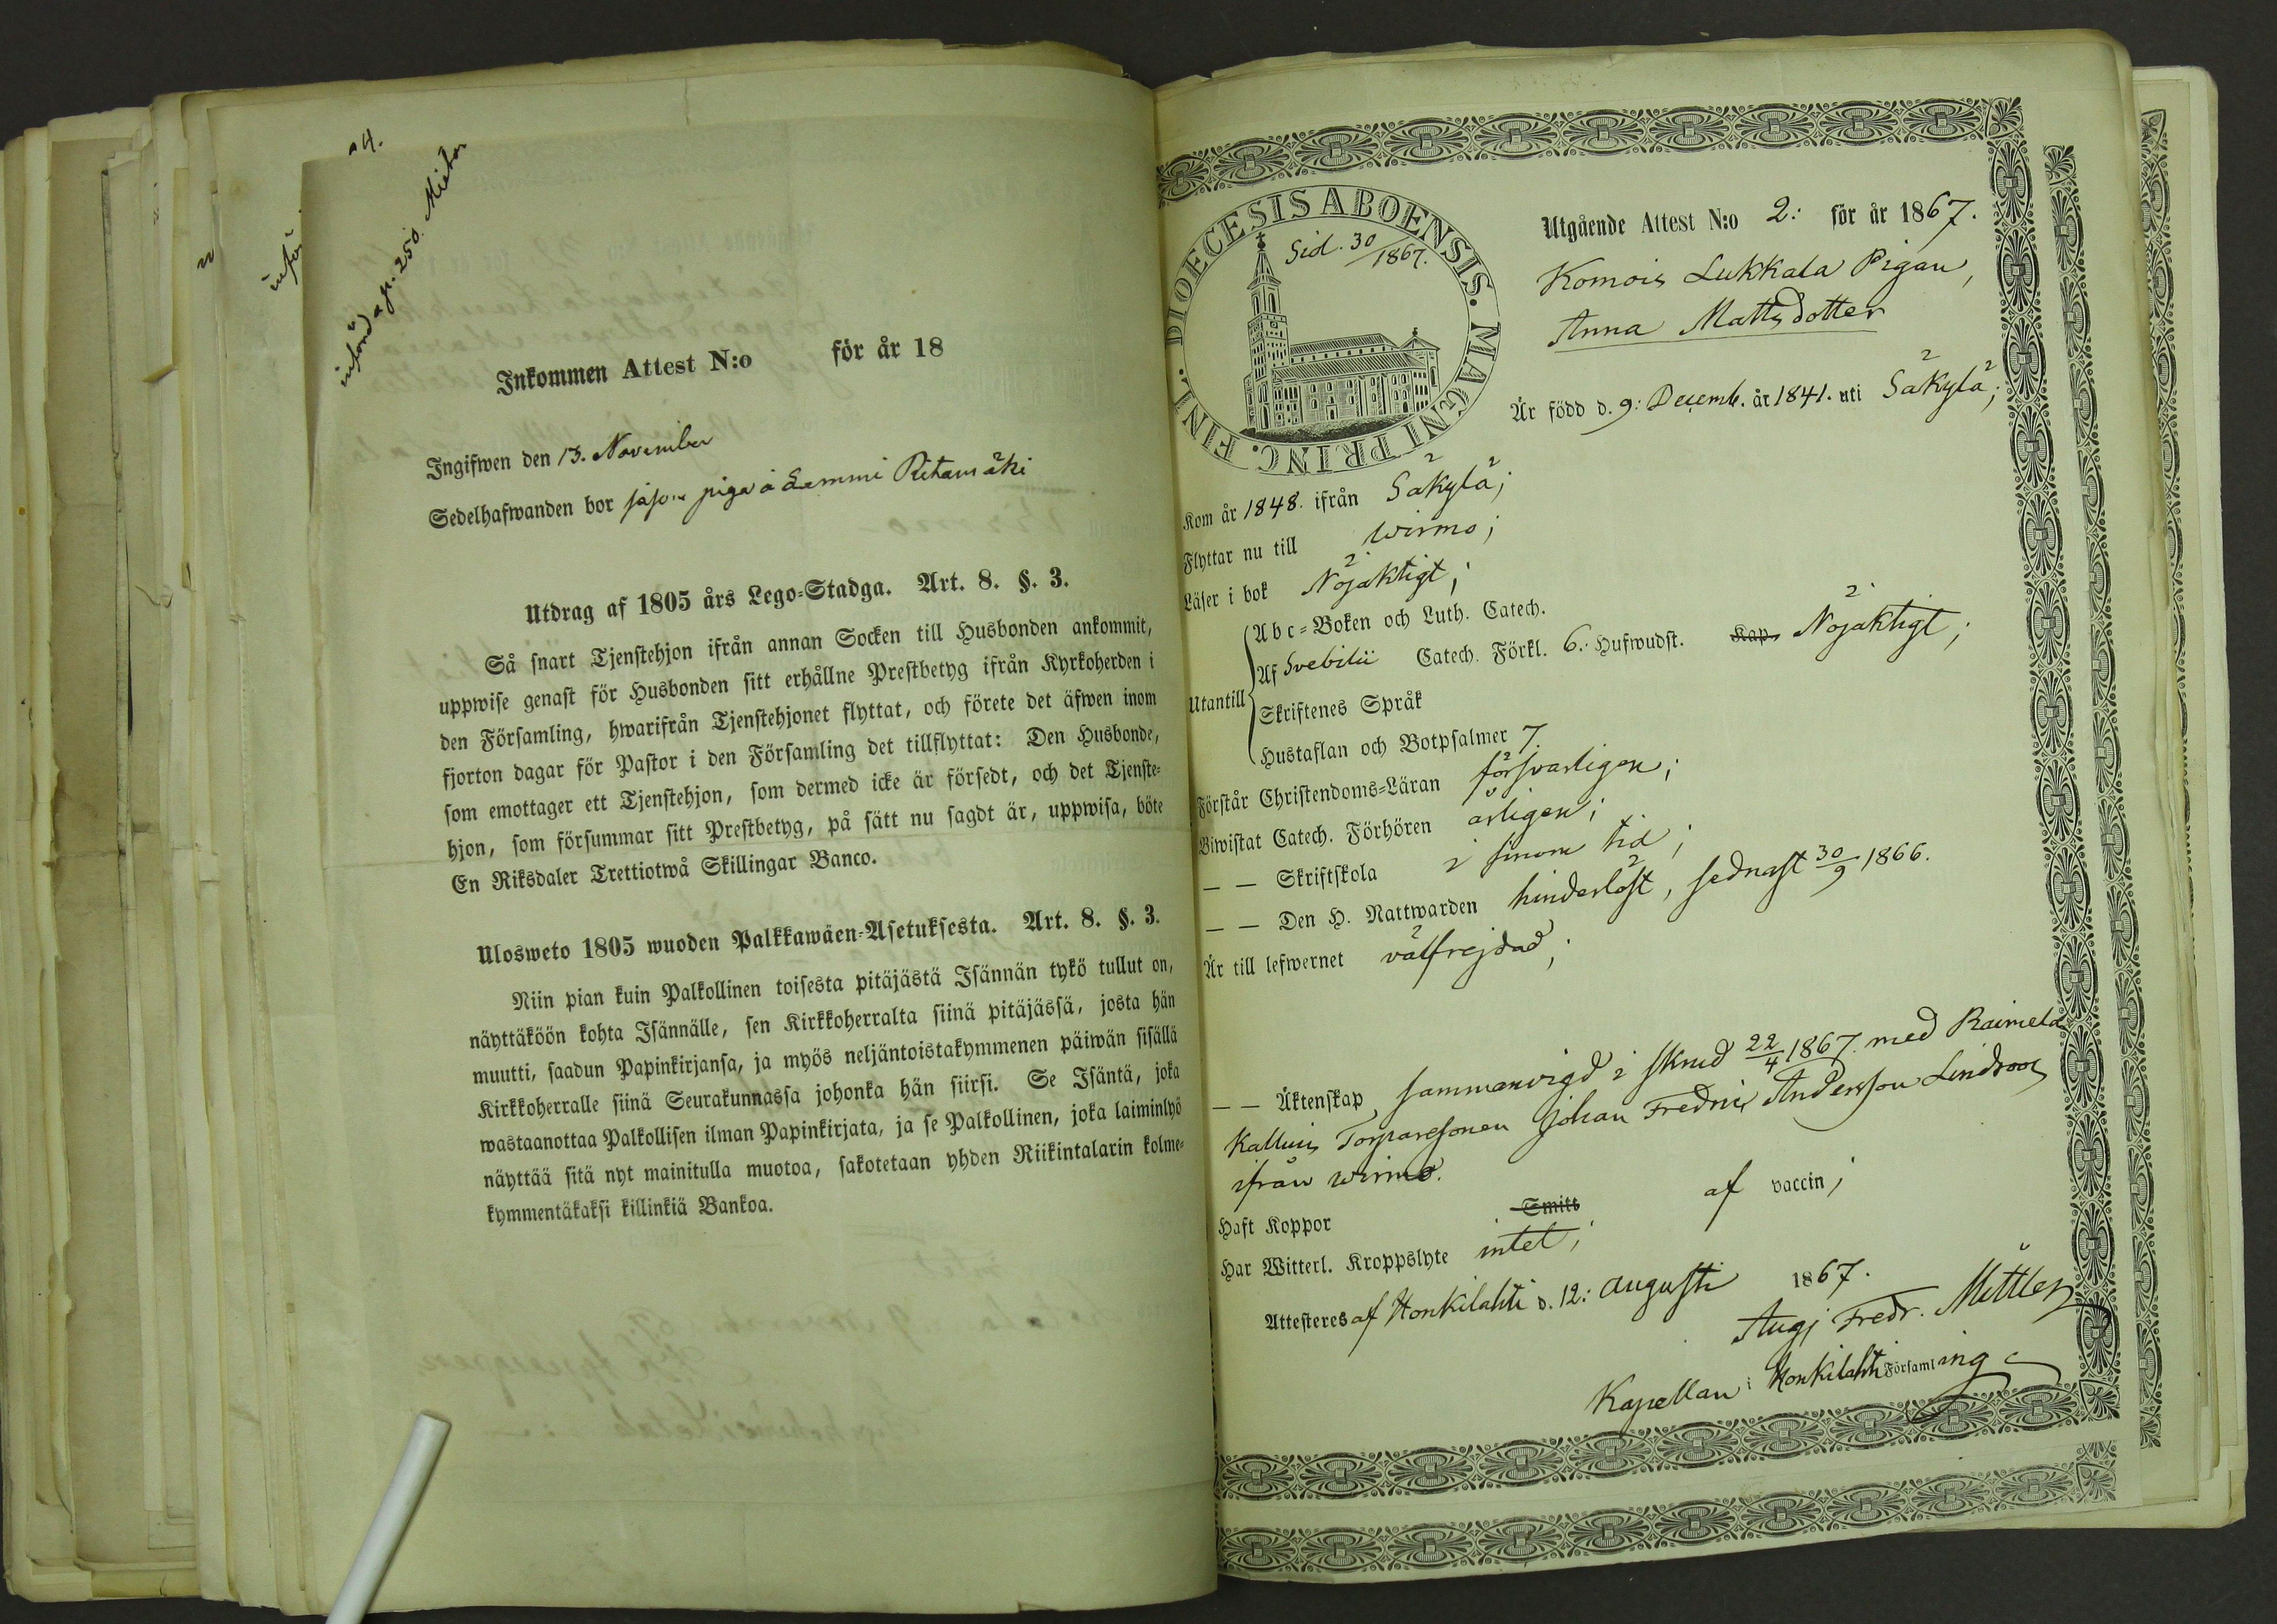 införd p. 250. Mietois
Inkommen Attest N:o för år 18
Ingifwen den 13. November
Sedelhafwanden bor såsom piga å Lemmi Rihamäki
Utdrag af 1805 års Lego-Stadga. Art. 8. §. 3.
Så snart Tjenstehjon ifrån annan Socken till Husbonden ankommit,
uppwise genast för Husbonden sitt erhållne Prestbetyg ifrån Kyrkoherden i
den Församling, hwarifrån Tjenstehjonet flyttat, och förete det äfwen inom
fjorton dagar för Pastor i den Församling det tillflyttat: Den Husbonde,
som emottager ett Tjenstehjon, som dermed icke är försedt, och det Tjenste-
hjon, som försummar sitt Prestbetyg, på sätt nu sagdt är, uppwisa, böte
En Riksdaler Trettiotwå Skillingar Banco.
Ulosweto 1805 wuoden Palkkawäen-Asetuksesta. Art. 8. §. 3.
Niin pian kuin Palkollinen toisesta pitäjästä Isännän tykö tullut on,
näyttäköön kohta Isännälle, sen Kirkkoherralta siinä pitäjässä, josta hän
muutti, saadun Papinkirjansa, ja myös neljäntoistakymmenen päiwän sisällä
Kirkkoherralle siinä Seurakunnassa johonka hän siirsi. Se Isäntä, joka
wastaanottaa Palkollisen ilman Papinkirjata, ja se Palkollinen, joka laiminlyö
näyttää sitä nyt mainitulla muotoa, sakotetaan yhden Riikintalarin kolme-
kymmentäkaksi killinkiä Bankoa.
DIOECESIS ABOENSIS. MAGNI PRINC. FINL.
Sid. 30/1867.
Utgående Attest N:o 2: för år 1867.
Komois Lukkala Pigan,
Anna Mattsdotter
Är född d. 9: Decemb. år 1841. uti Säkylä;
Kom år 1848. ifrån Säkylä;
Flyttar nu till Wirmo;
Läser i bok Nöjaktigt;
Utantill
Abc-Boken och Luth. Catech.
Af Svebilii Catech. Förkl. 6. Hufwudst. Kap. Nöjaktigt;
Skriftenes Språk
Hustaflan och Botpsalmer 7.
Förstår Christendoms-Läran försvarligen;
Biwistat Catech. Förhören årligen;
— — Skriftskola i sinom tid;
— — Den H. Nattwarden hinderlöst, sednast 30/9 1866.
Är till lefwernet välfrejdad;
— — Äktenskap, sammanvigd i skrud 22/4 1867. med Raimela
Kalluis Torparesonen Johan Fredric Andersson Lindroos
ifrån Wirmo.
Haft Koppor Smitt af vaccin;
Har Witterl. Kroppslyte intet;
Attesteres af Honkilahti d. 12: Augusti 1867.
Aug; Fredr. Mittler
Kapellan i Honkilahti Församling